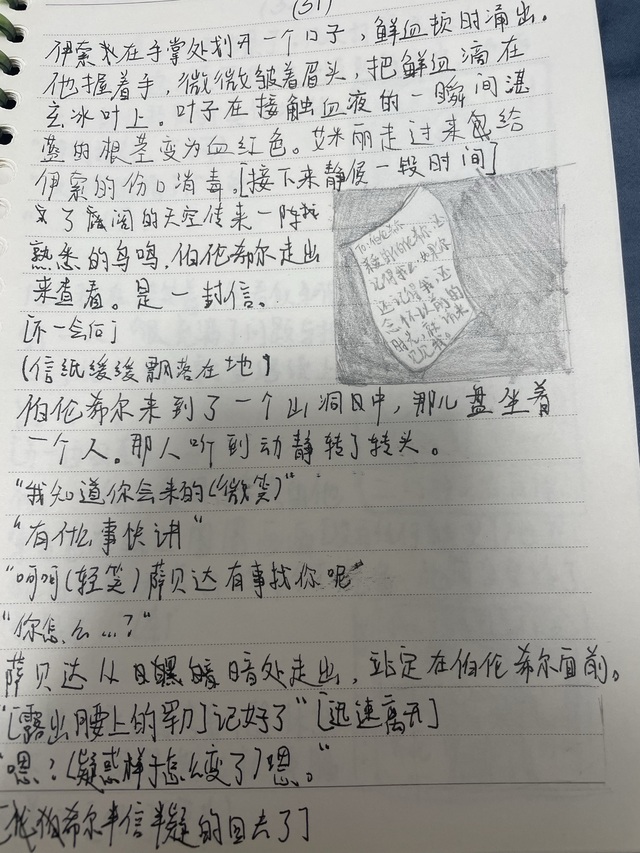 (31)
伊索尔在手掌处划开一个口子，鲜血顿时涌出。
他握着手，微微皱着眉头，把鲜血滴在
玄冰叶上。叶子在接触血液的一瞬间湛
蓝的根茎变为血红色。艾米丽走过来给
伊索的伤口消毒。[接下来静候一段时间]
了 阔的天空传来一阵
熟悉的鸟鸣，伯伦希尔走出
来查看。是一封信。
[不一会后]
(信纸缓缓飘落在地)
To.伯伦希尔
记得我
还记得我，还
念怀以前的
时光，就
伯伦希尔来到了一个山洞中，那儿盘坐着
一个人。那人听到动静转了转头。
"我知道你会来的(微笑)"
"有什么事快讲"
"呵呵(轻笑)萨贝达有事找你呢"
"你怎么…？"
萨贝达从 暗处走出，站定在伯伦希尔面前。
"[露出腰上的军刀]记好了"[迅速离开]
"嗯？(疑惑样子怎么变了)嗯。"
[希尔半信半疑的回去了]